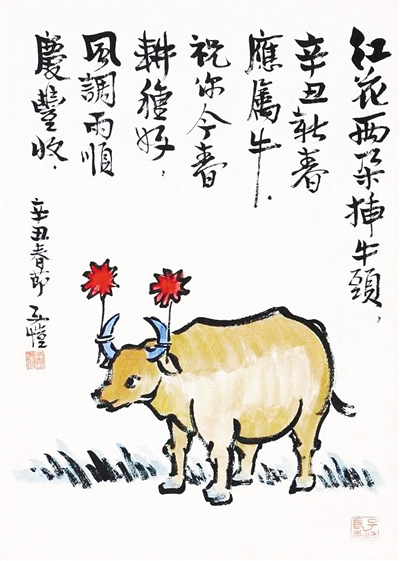 红花両朵插牛頭，
辛丑新春
應属牛．
祝你今春
耕種好，
風調雨順
慶豐收．
辛丑春節 子愷